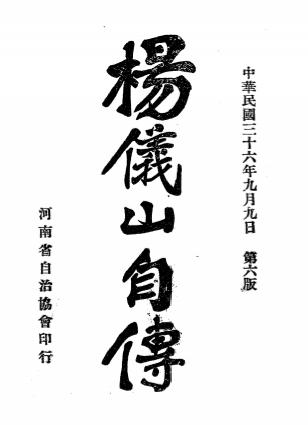 中華民國三十六年九月九日　第六版
楊儀山自傳
河南省自治協會印行